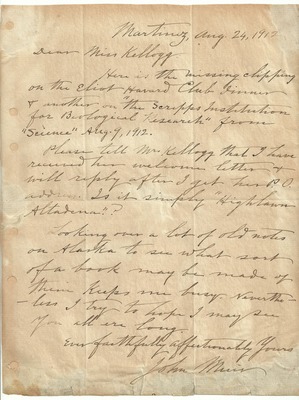 Martinez, Aug 24, 1912
Dear Miss Kellogg
Here is the missing clipping
on the Eliot Harvard Club Dinner
& another on the Scripps Institution
for Biological Research" from
"Science" Aug 9, 1912.
Please tell Mrs. Kellogg that I have
received her welcome letter &
will reply after I get her P.O.
address. Is it simply Highlawn
Altadena??
Looking over a lot of old notes
on Alaska to see what sort
of a book may be made of
them keeps me busy. Neverthe
-less I try to hope I may see
you all ere long.
Ever faithfully affectionately Yours
John Muir